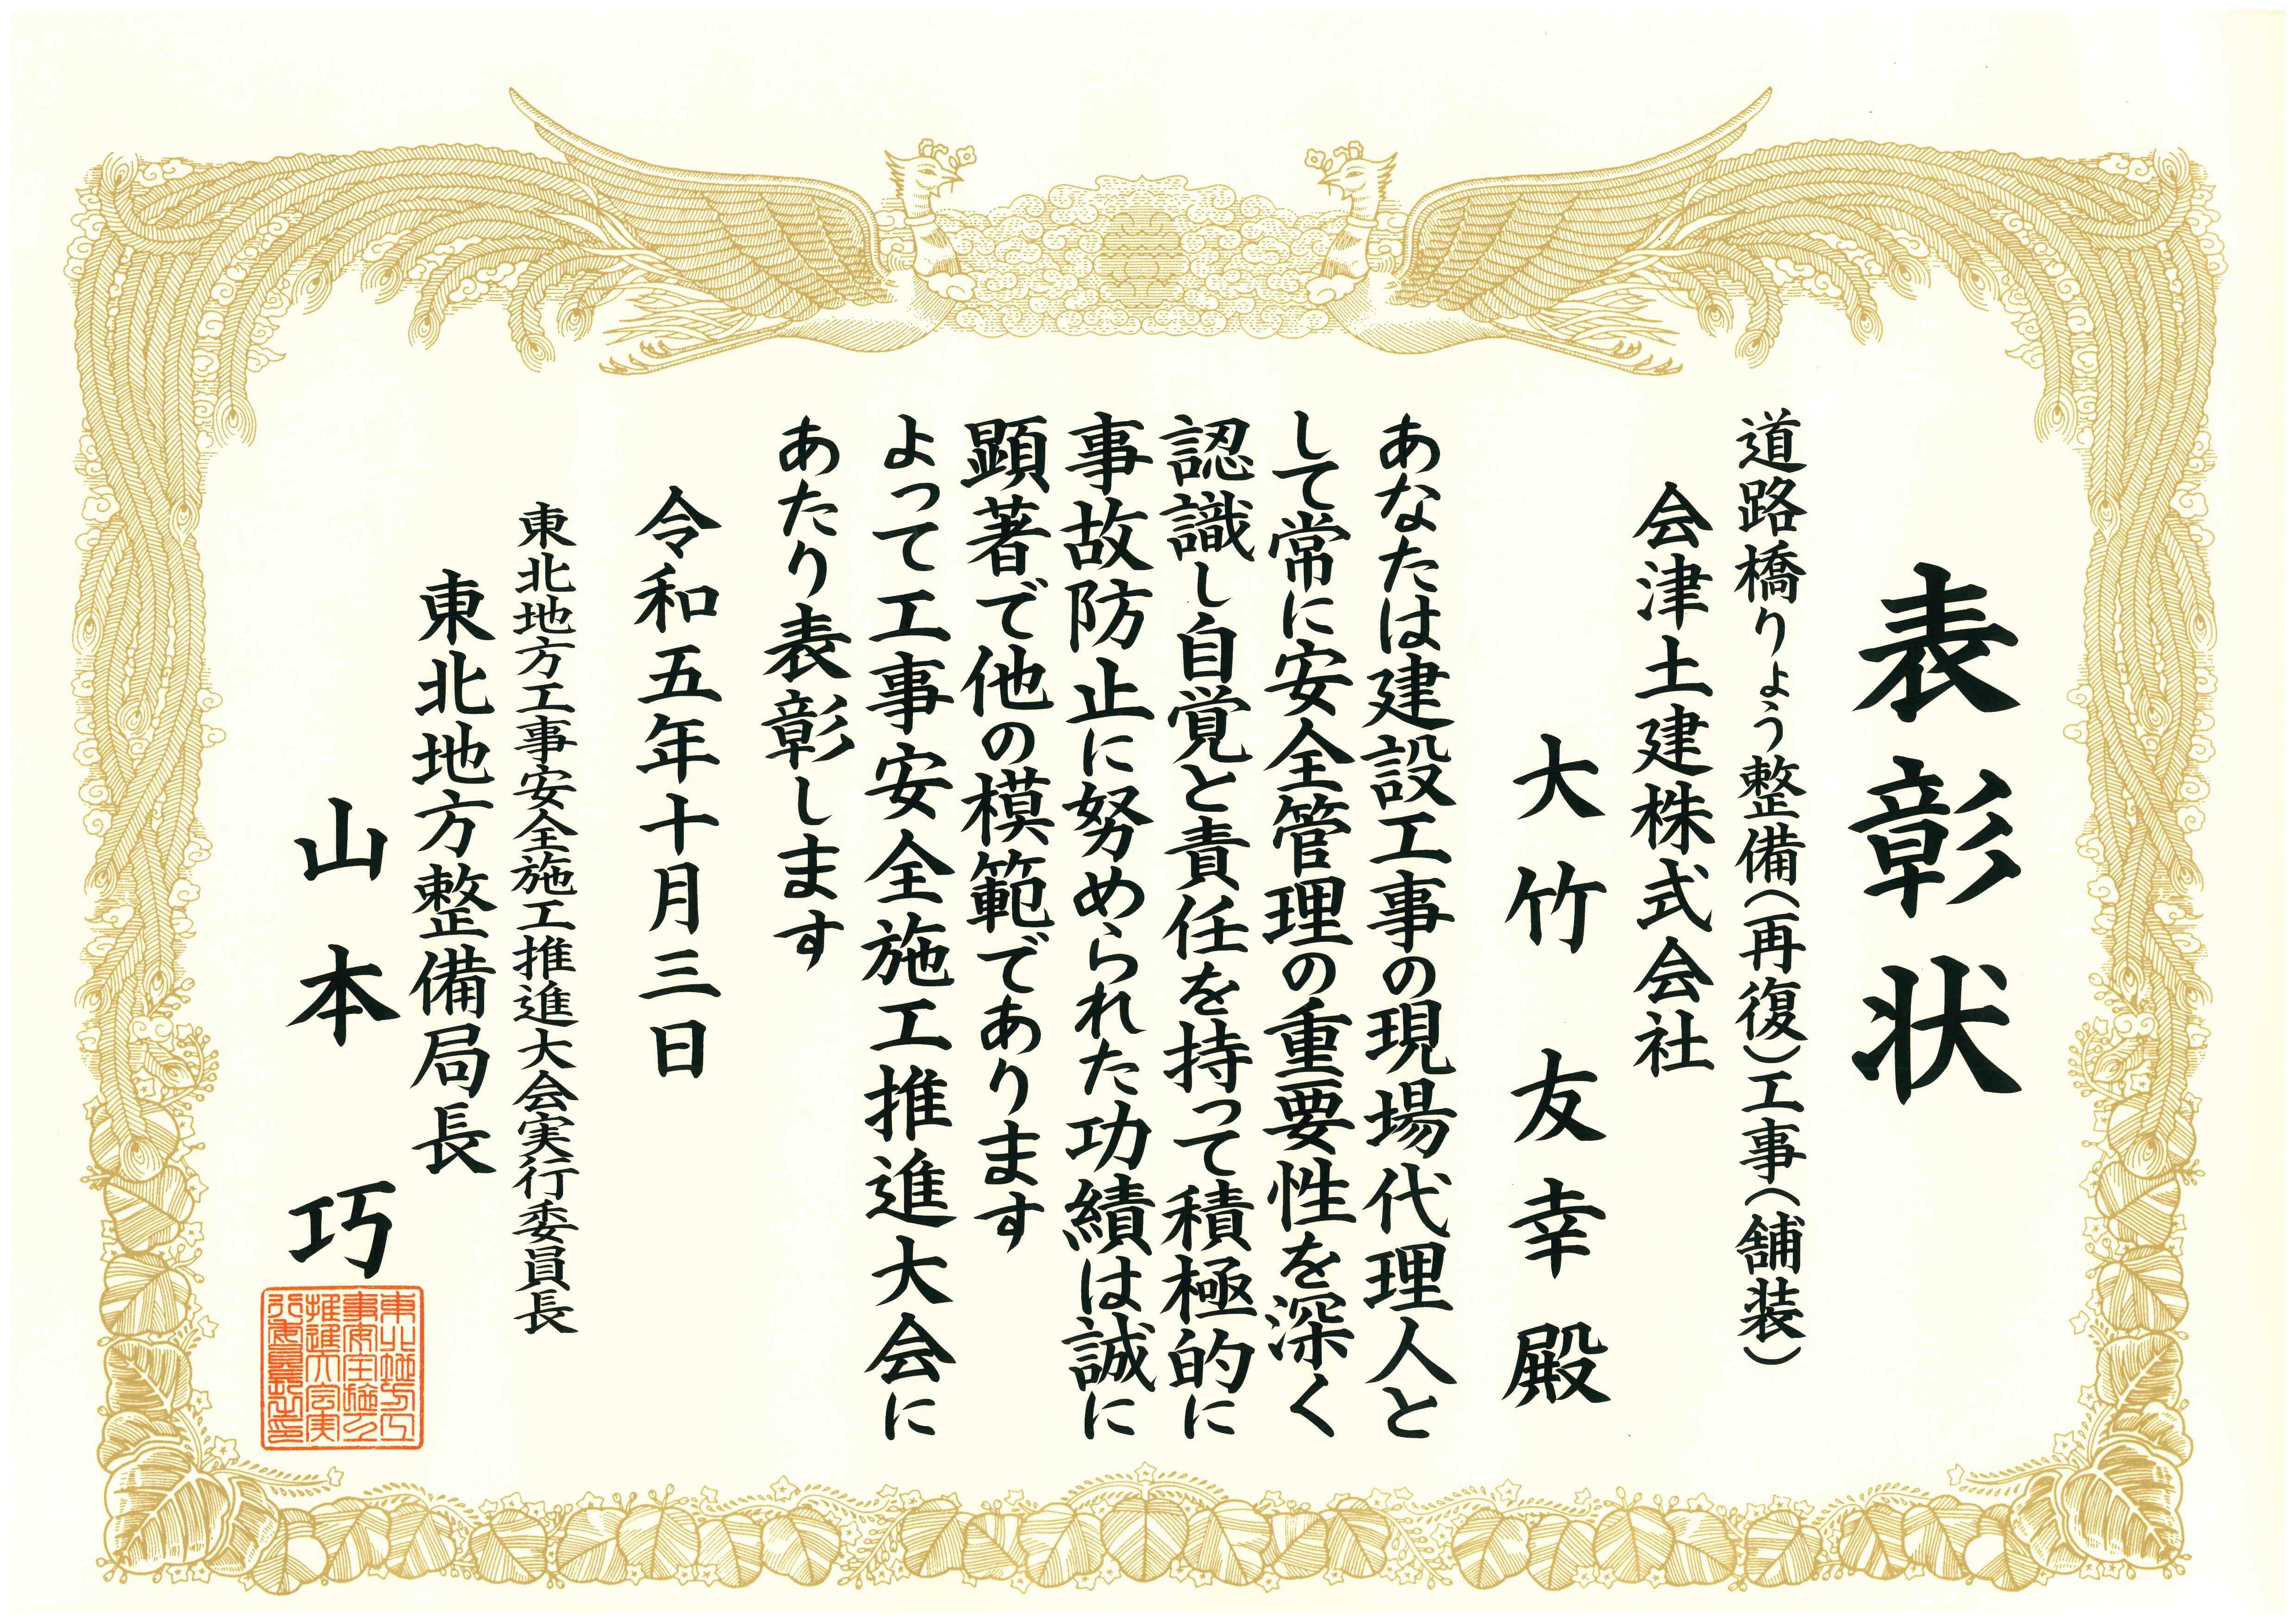 表彰状
道路橋りょう整備（再復）工事（舗装）
会津土建株式会社
大竹友幸殿
あなたは建設工事の現場代理人と
して常に安全管理の重要性を深く
認識し自覚と責任を持って積極的に
事故防止に努められた功績は誠に
顕著で他の模範であります
よって工事安全施工推進大会に
あたり表彰します
令和五年十月三日
東北地方工事安全施工推進大会実行委員長
東北地方整備局長
山本巧